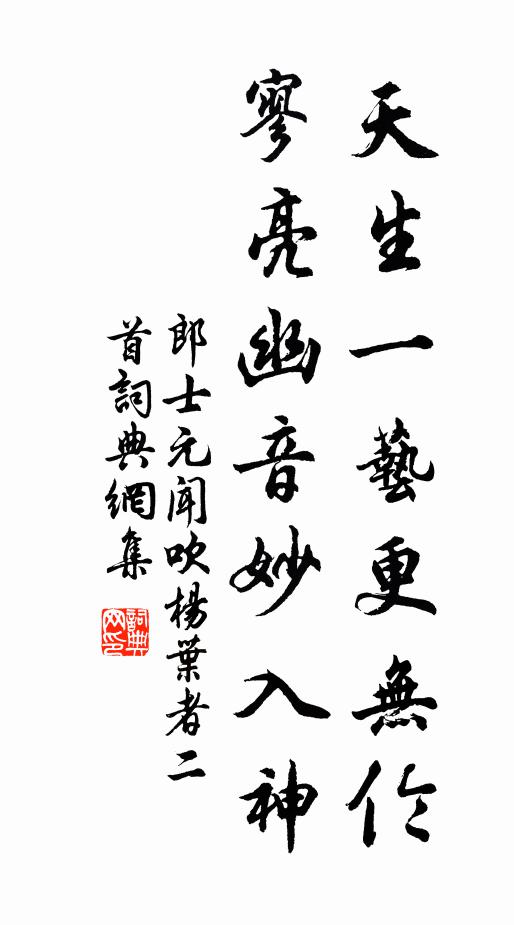 天生一藝更無倫
寥亮幽音妙入神
郎士元聞吹楊葉者二
首詞典網集
詞典
网印